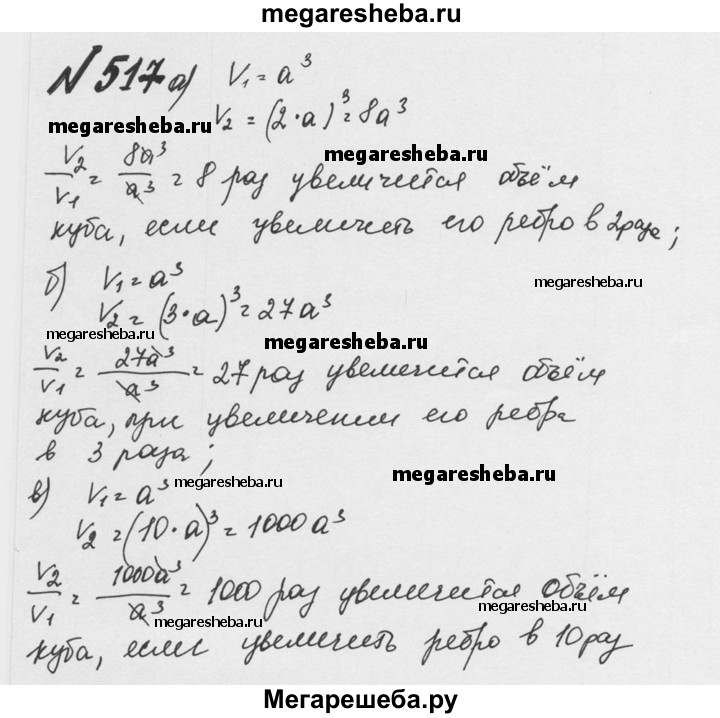 megaresheba.ru
№ 517 а) V₁ = a³
V₂ = (2·a)³ = 8a³
megaresheba.ru
megaresheba.ru
V₂/V₁ = 8a³/a³ = 8 раз увеличется объём
куба, если увеличеть его ребро в 2 раза;
б) V₁ = a³
megaresheba.ru
V₂ = (3·a)³ = 27a³
megaresheba.ru
megaresheba.ru
V₂/V₁ = 27a³/a³ = 27 раз увеличится объём
куба, при увеличении его ребра
в 3 раза;
megaresheba.ru
в) V₁ = a³
megaresheba.ru
V₂ = (10·a)³ = 1000a³
V₂/V₁ = 1000a³/a³ = 1000 раз увеличится объём
megaresheba.ru
megaresheba.ru
куба, если увеличить ребро в 10 раз
megaresheba.ru
Мегарешеба.ру